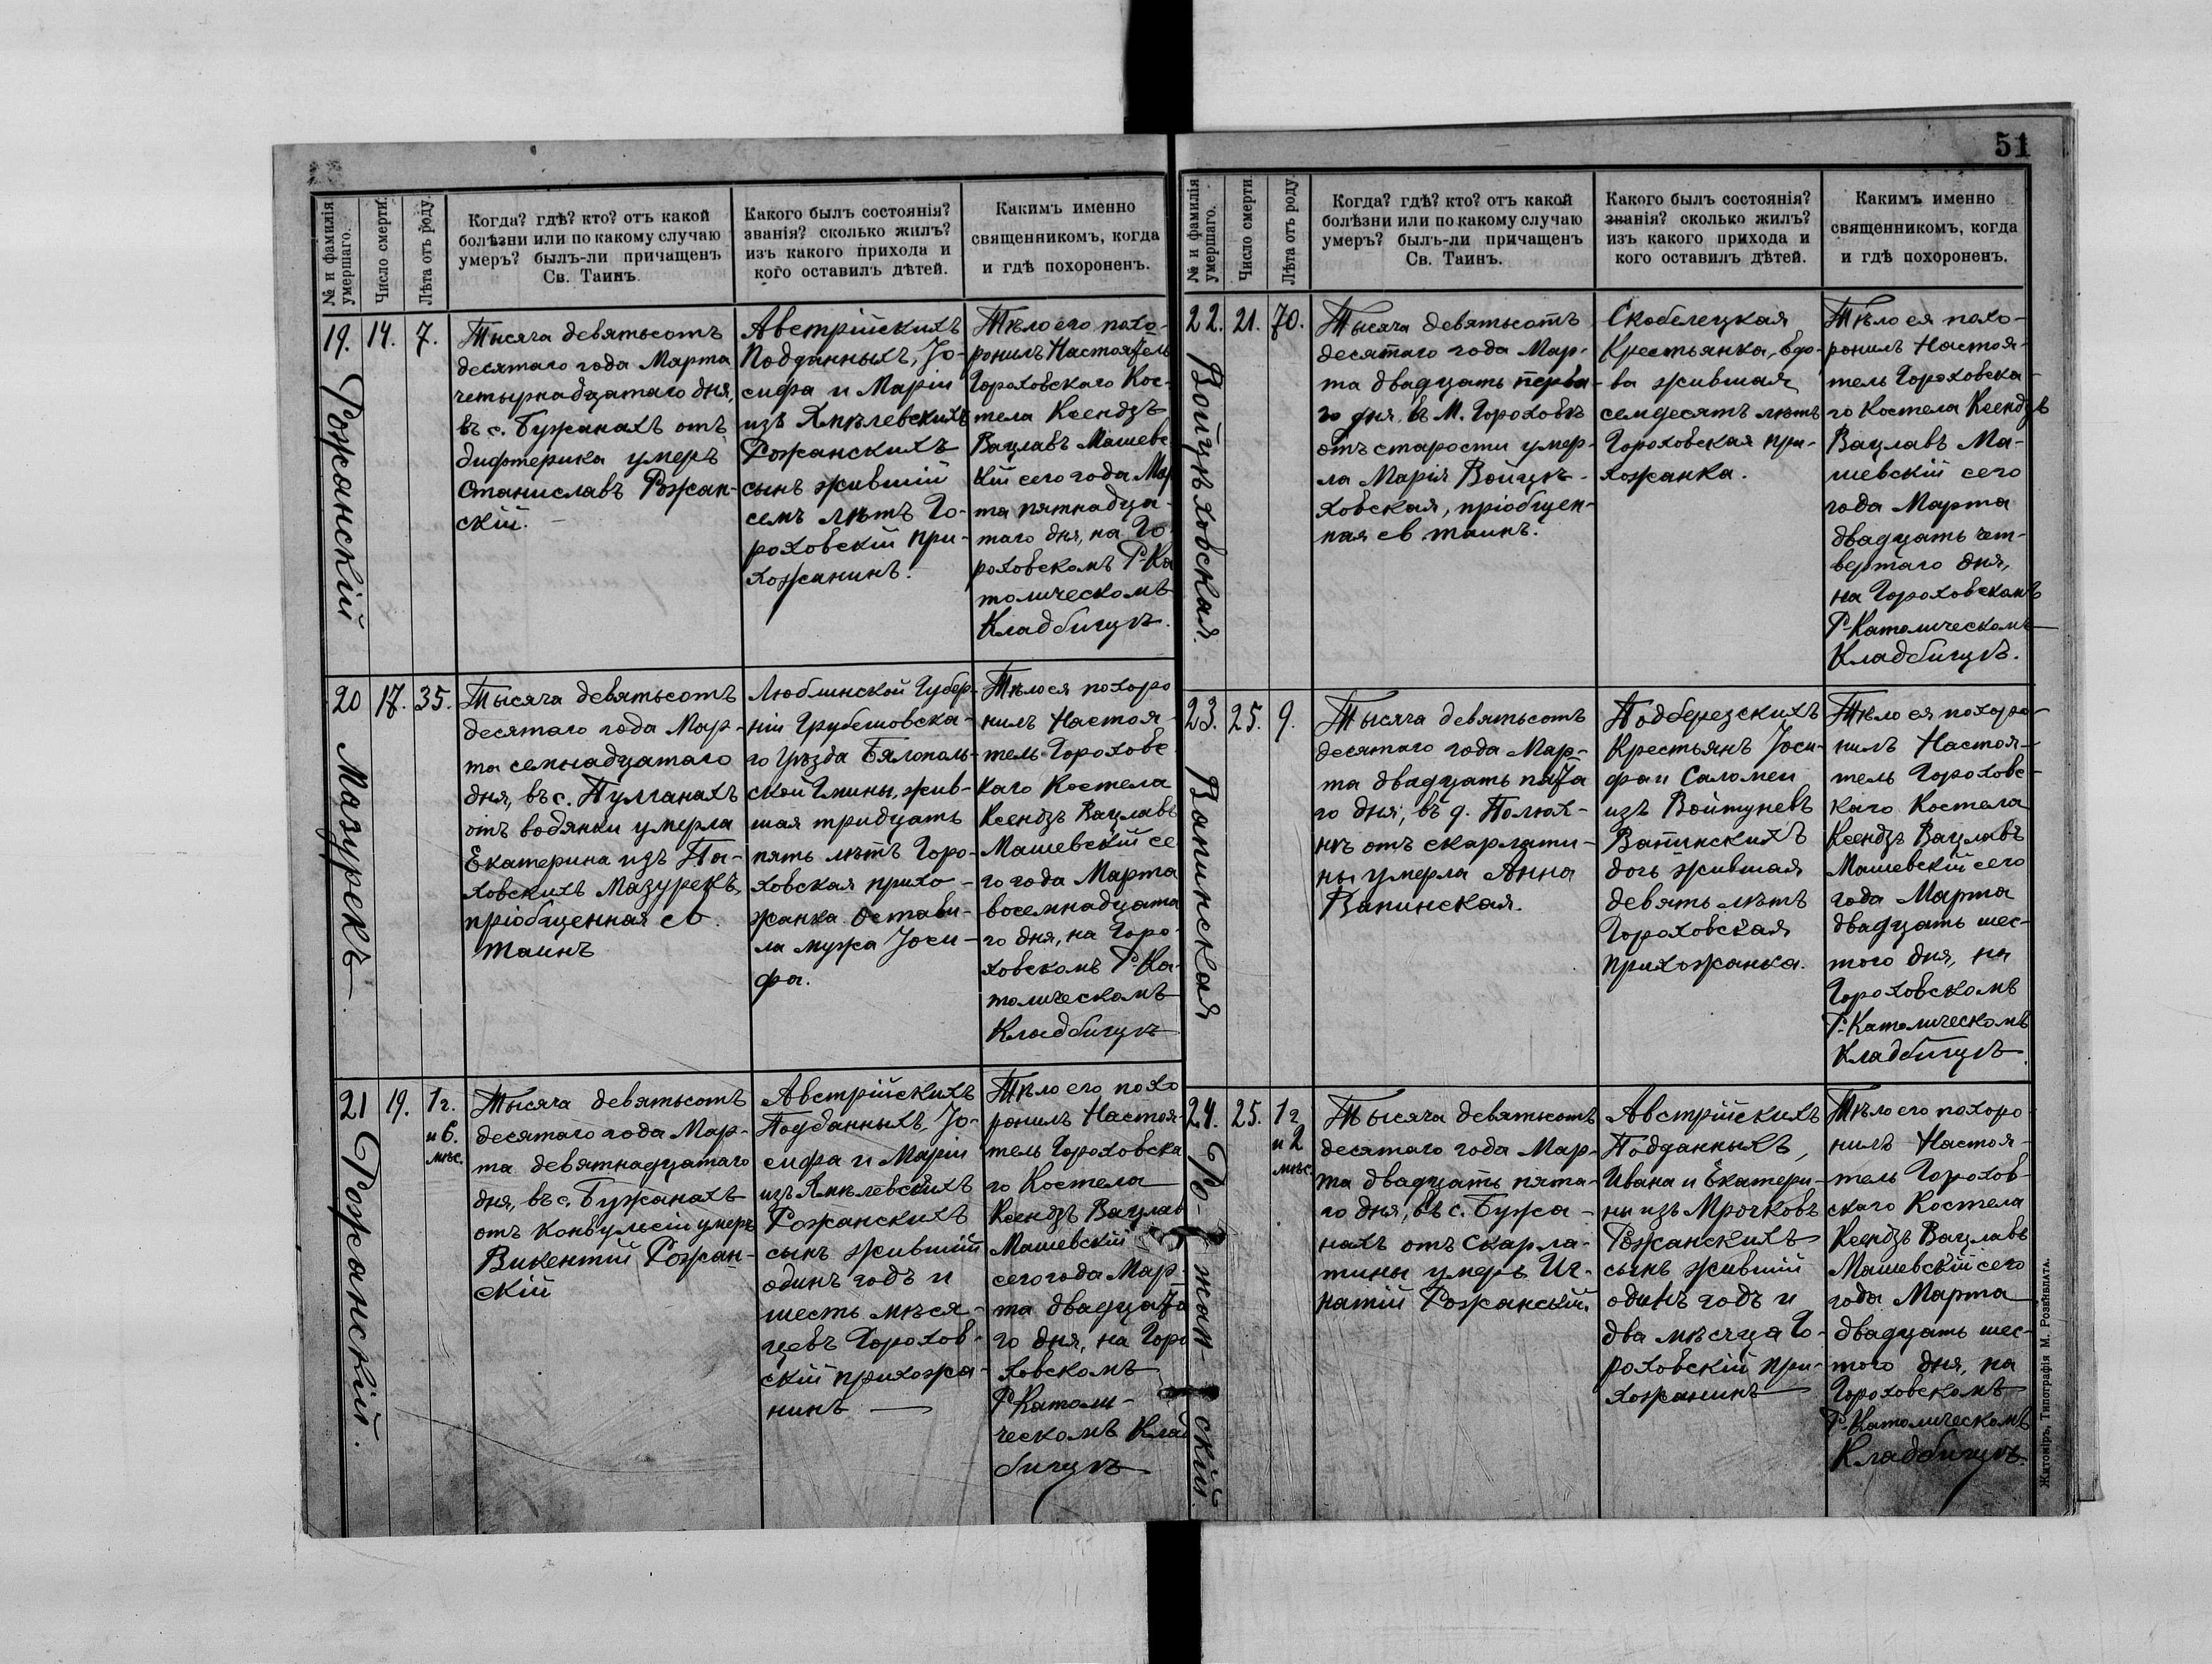 51
№ и фамилія
умершаго.
Число смерти.
Лѣта отъ роду.
Когда? гдѣ? кто? отъ какой
болѣзни или по какому случаю
умеръ? былъ-ли причащенъ
Св. Таинъ.
Какого былъ состоянія?
званія? сколько жилъ?
изъ какого прихода и
кого оставилъ дѣтей.
Какимъ именно
священникомъ, когда
и гдѣ похороненъ.
19.
Рожанскій
14.
7.
Тысяча девятьсотъ
десятаго года Марта
четырнадцатаго дня,
въ с. Бужанахъ отъ
дифтерика умеръ
Станиславъ Рожан-
скій.
Австрійскихъ
Подданныхъ, Іо-
сифа и Маріи
изъ Хмѣлевскихъ
Рожанскихъ
сынъ жившій
семъ лѣтъ Го-
роховскій при-
хожанинъ.
Тѣло его похо-
ронилъ Настоятель
Гороховскаго Кос-
тела Ксендзъ
Вацлавъ Машевс
кій сего года Мар
та пятнадца-
таго дня, на Го
роховскомъ Р-Ка
толическомъ
Кладбищѣ.
20
Мазурекъ
17.
35.
Тысяча девятьсотъ
десятаго года Мар-
та семнадцатаго
дня, въ с. Пулганахъ
отъ водянки умерла
Екатерина изъ Па-
ховскихъ Мазурекъ,
пріобщенная св.
таинъ
Люблинской Губер-
ніи Грубешовска-
го Уѣзда Бялополь-
ской Гмины, жив-
шая тридцать
пять лѣтъ Горо-
ховская прихо-
жанка. Остави-
ла мужа Іоси-
фа.
Тѣло ея похоро
нилъ Настоя-
тель Гороховс
каго Костела
Ксендзъ Вацлавъ
Машевскій се
го года Марта
восемнадцата
го дня, на Горо-
ховскомъ Р-Ка-
толическомъ
Кладбищѣ
21
Рожанскій.
19.
1 г.
и 6.
мѣс.
Тысяча девятьсотъ
десятаго года Мар-
та девятнадцатаго
дня, въ с. Бужанахъ
отъ конвулсіи умеръ
Викентій Рожан-
скій
Австрійскихъ
Подданныхъ, Іо-
сифа и Маріи
изъ Хмѣлевскихъ
Рожанскихъ
сынъ жившій
одинъ годъ и
шесть мѣся-
цевъ Горохов-
скій прихожа-
нинъ
Тѣло его похо
ронилъ Настоя-
тель Гороховска
го Костела
Ксендзъ Вацлав
Машевскій
сего года Мар-
та двадцата
го дня, на Горо
ховскомъ
Р-Католи-
ческомъ Клад
бищѣ
№ и фамилія
умершаго.
Число смерти.
Лѣта отъ роду.
Когда? гдѣ? кто? отъ какой
болѣзни или по какому случаю
умеръ? былъ-ли причащенъ
Св. Таинъ.
Какого былъ состоянія?
званія? сколько жилъ?
изъ какого прихода и
кого оставилъ дѣтей.
Какимъ именно
священникомъ, когда
и гдѣ похороненъ.
22.
Войцѣховская.
21.
70.
Тысяча девятьсотъ
десятаго года Мар-
та двадцать перва-
го дня, въ М. Гороховѣ
отъ старости умер-
ла Марія Войцѣ-
ховская, пріобщен-
ная св. таинъ.
Скобелецкая
Крестьянка, вдо-
ва жившая
семдесятъ лѣтъ
Гороховская при-
хожанка.
Тѣло ея похо-
ронилъ Настоя-
тель Гороховска-
го Костела Ксендзъ
Вацлавъ Ма-
шевскій сего
года Марта
двадцать чет-
вертаго дня,
на Гороховскомъ
Р-Католическомъ
Кладбищѣ.
23.
Вапинская
25.
9.
Тысяча девятьсотъ
десятаго года Мар-
та двадцать пята
го дня, въ д. Полюх-
нѣ отъ скарлати-
ны умерла Анна
Вапинская.
Подберезскихъ
Крестьянъ Іоси-
фа и Саломеи
изъ Войтуневъ
Вапинскихъ
дочь жившая
девять лѣтъ
Гороховская
прихожанка.
Тѣло ея похоро-
нилъ Настоя-
тель Гороховс-
каго Костела
Ксендзъ Вацлавъ
Машевскій сего
года Марта
двадцать шес-
того дня, на
Гороховскомъ
Р-Католическомъ
Кладбищѣ.
24.
Рожанскій.
25.
1 г
и 2
мѣс.
Тысяча девятьсотъ
десятаго года Мар-
та двадцать пята-
го дня, въ с. Бужа-
нахъ отъ скарла-
тины умеръ Иг-
натій Рожанскій.
Австрійскихъ
Подданныхъ,
Ивана и Екатери-
ны изъ Мрочковъ
Рожанскихъ
сынъ жившій
одинъ годъ и
два мѣсяца Го-
роховскій при-
хожанинъ
Тѣло его похоро
нилъ Настоя-
тель Горохов-
скаго Костела
Ксендзъ Вацлавъ
Машевскій сего
года Марта
двадцать шес-
того дня, на
Гороховскомъ
Р-Католическомъ
Кладбищѣ.
Житоміръ, Типографія М. Розенблата.